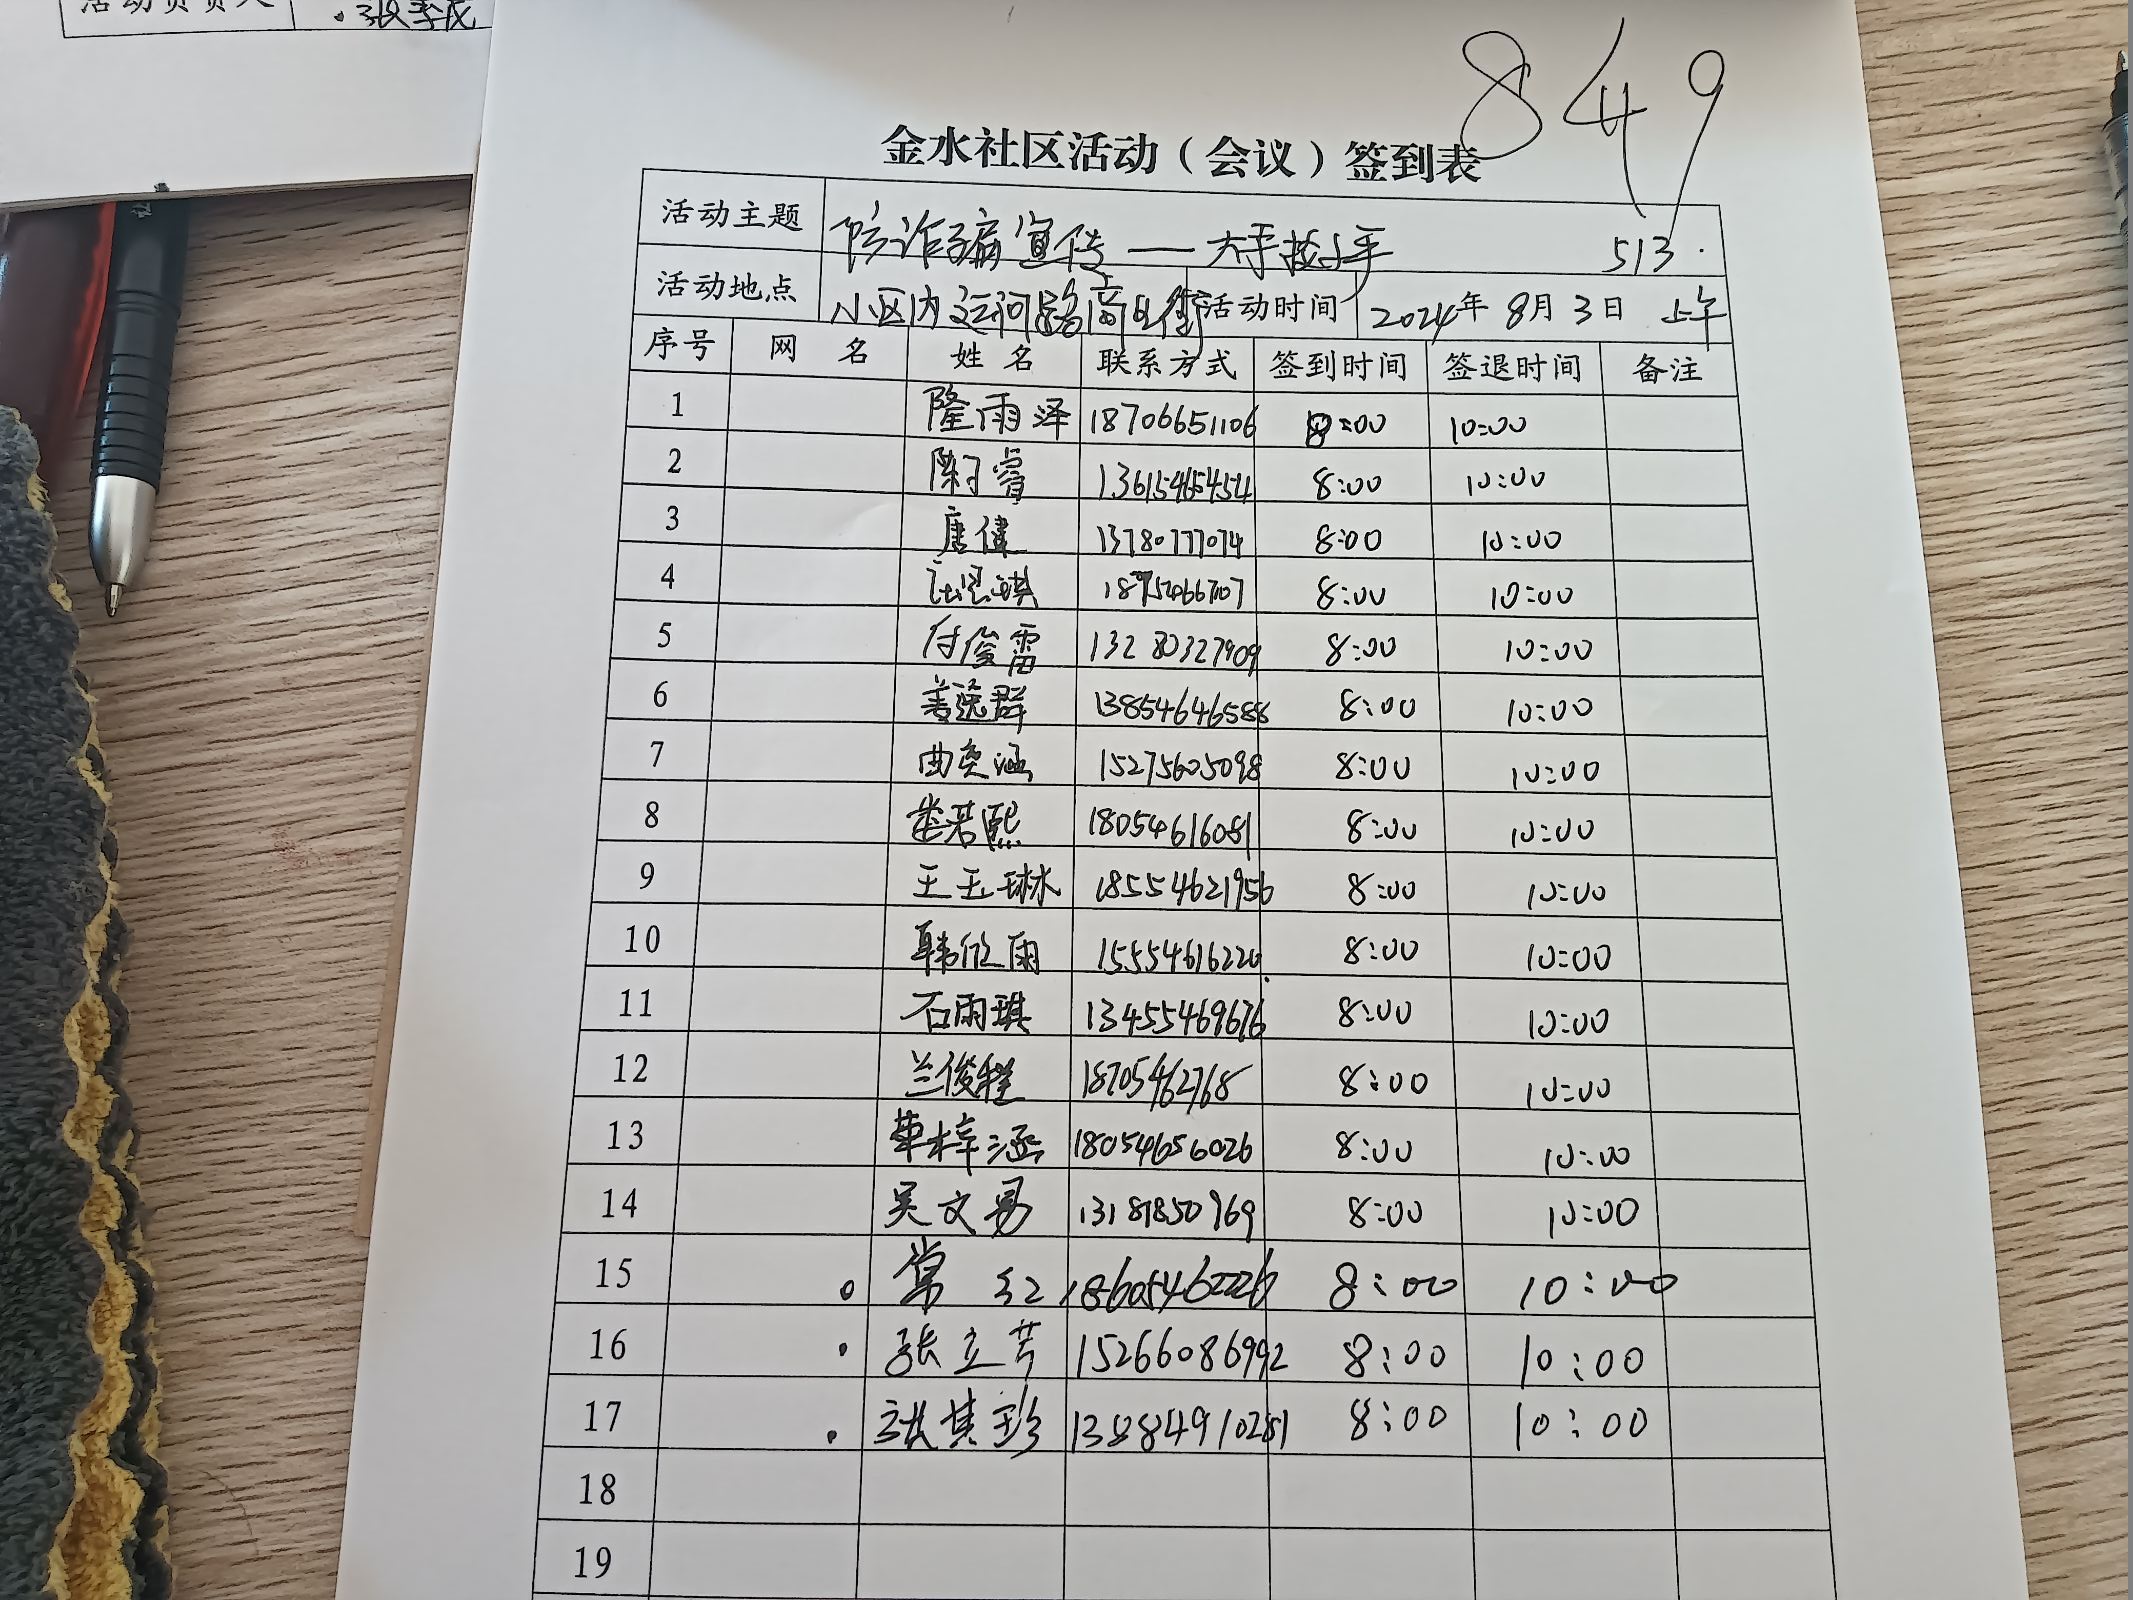 活动负责人
849
金水社区活动（会议）签到表
活动主题 防诈骗宣传 — 大手拉小手 513.
活动地点 小区内运河路商业街 活动时间 2024年 8月 3日 上午
序号 网 名 姓 名 联系方式 签到时间 签退时间 备注
1 隆雨泽 18706651106 8:00 10:00
2 陈可睿 13615465454 8:00 10:00
3 唐健 13780777074 8:00 10:00
4 8:00 10:00
5 付俊雷 13280327909 8:00 10:00
6 姜逸群 13854646588 8:00 10:00
7 曲奕涵 15275605098 8:00 10:00
8 娄若熙 18054616081 8:00 10:00
9 王玉琳 18554621956 8:00 10:00
10 韩欣雨 15554616220 8:00 10:00
11 石雨琪 13455469676 8:00 10:00
12 兰俊程 18705462768 8:00 10:00
13 梓涵 18054656026 8:00 10:00
14 吴文易 13181850969 8:00 10:00
15 常红 18605462226 8:00 10:00
16 张立芹 15266086992 8:00 10:00
17 张其珍 13884910281 8:00 10:00
18
19